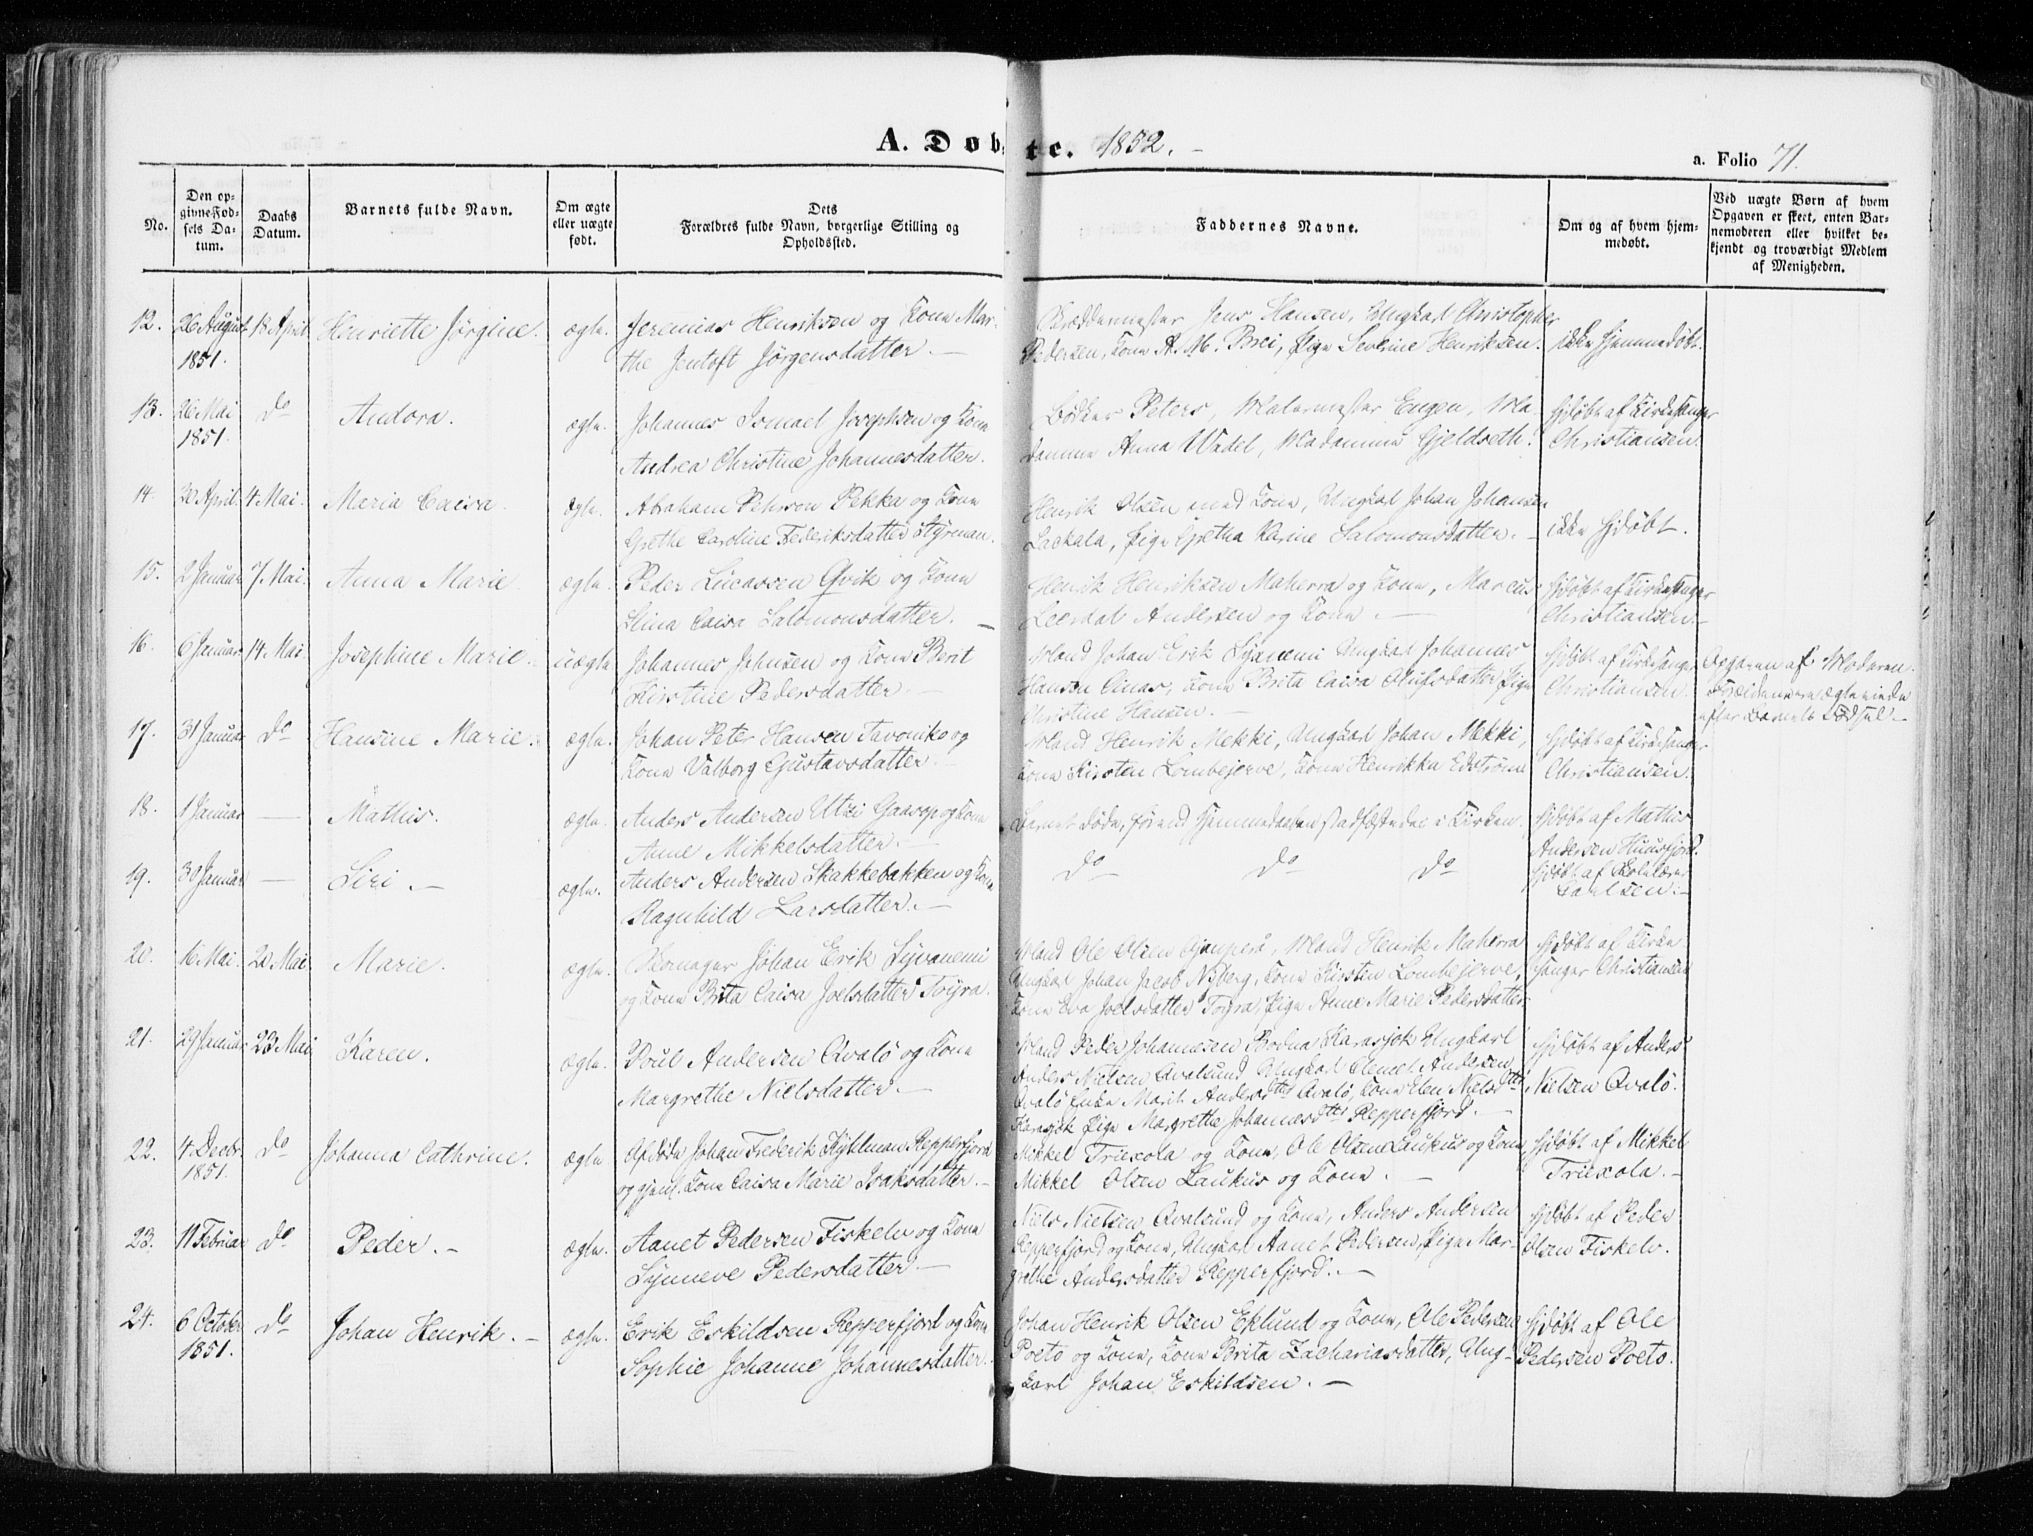 A. Døbte. 1852.
a. Folio 71.
No.
Den opgivne Fødsels Datum.
Daabs Datum.
Barnets fulde Navn.
Om ægte eller uægte født.
Dets
Forældres fulde Navn, borgerlige Stilling og
Opholdssted.
Faddernes Navne.
Om og af hvem hjemmedøbt.
Ved uægte Børn af hvem
Opgaven er skeet, enten Barnemoderen eller hvilket bekjendt og troværdigt Medlem
af Menigheden.
12. 26 August 1851. 18 April Henriette Jørgine. ægte. Jeremias Henriksen og Kone Mar-
the Jentoft Jørgensdatter. —
Jens Hansen, Ungkarl Christopher
Pedersen, Kone A. M. Brei, Pige Severine Henriksen.
ikke hjemmedøbt.
13. 26 Mai 1851. do Andora. ægte. Johannes Ismael Josephsen og Kone
Andrea Christine Johannesdatter.
Bødker Peters, Malermester Eugen, Ma-
damme Anna Wadel, Madamme Gjeldseth.
hjdøbt af Kirkesanger
Christiansen.
14. 30 April. 4 Mai. Maria Caisa. ægte. Abraham Petersen Pekka og Kone
Grethe Caroline Frederiksdatter Styrman.
Henrik Olsen med Kone, Ungkarl Johan Johansen
Lackala, Pige Gretha Karine Salomonsdatter. —
ikke hjdøbt.
15. 2 Januar 7 Mai. Anna Marie. ægte. Peder Lucassen Qvik og Kone
Stina Caisa Salomonsdatter. —
Henrik Henriksen Maherra og Kone, Marcus
Leerdal Andersen og Kone. —
hjdøbt af Kirkesanger
Christiansen. —
16. 6 Januar 14 Mai. Josephine Marie. uægte. Johannes Johnsen og Kone Berit
Kirstine Pedersdatter. —
Mand Johan Erik Syvanemi Ungkarl Johannes
Hansen Cinas, Kone Brita Caisa Olufsdatter Pige
Christine Hansen. —
hjdøbt af Kirkesanger
Christiansen.
Opgaven af Moderen.
Forældrene ere ægteviede
efter Barnets Fødsel. —
17. 31 Januar do Hansine Marie. ægte. Johan Peter Hansen Tavoniko og
Kone Valborg Gustavsdatter. —
Mand Henrik Mekki, Ungkarl Johan Mekki,
Kone Kirsten Lombejerve, Kone Henrikka Edstrøme
hjdøbt af Kirkesanger
Christiansen.
18. 1 Januar — Mathis. ægte. Anders Andersen Utsi Gaasop og Kone
Anne Mikkelsdatter. —
Barnet døde, førend Hjemmedaaben stadfæstedes i Kirken.
hjdøbt af Mathis
Andersen Huusfjord.
19. 30 Januar — Siri. — ægte. Anders Andersen Skakkebakken og Kone
Ragnhild Larsdatter. —
do do do
hjdøbt af Skolelærer
Carlsen. —
20. 16 Mai. 20 Mai Marie. ægte. Skomager Johan Erik Syvanemi
og Kone Brita Caisa Joelsdatter Toijra.
Mand Ole Olsen Ojanperä, Mand Henrik Maherra
Ungkarl Johan Jacob Nyberg, Kone Kirsten Lombejerve,
Kone Eva Joelsdatter Toijra, Pige Anne Marie Pedersdatter
hjdøbt af Kirke
sanger Christiansen
21. 29 Januar 23 Mai Karen. ægte. Poul Andersen Qvalø og Kone
Margrethe Nielsdatter. —
Mand Peder Johannesen Bodna Karasjok Ungkarl
Anders Nielsen Qvalsund, Ungkarl Clemet Andersen
Qvalø Enke Marit Andersdtter Qvalø, Kone Elen Nielsdtt
Karasjok Pige Margrethe Johannesdtter Repperfjord. —
hjdøbt af Anders
Nielsen Qvalø.
22. 4 Decbr. 1851. do Johanna Cathrine. ægte Afdøde Johan Frederik Kyhlman Repperfjord
og gjenl. Kone Caisa Marie Isaksdatter. —
Mikkel Triexola og Kone, Ole Olsen Laukus og Kone
Mikkel Olsen Laukus og Kone. —
hjdøbt af Mikkel
Triexola. —
23. 11 Februar do Peder. — ægte. Aanet Pedersen Fiskelv og Kone
Synneve Pedersdatter —
Niels Nielsen Qvalsund og Kone, Anders Andersen
Repperfjord og Kone, Ungkarl Aanet Pedersen, Pige Mar-
grethe Andersdatter Repperfjord. —
hjdøbt af Peder
Olsen Fiskelv.
24. 6 October 1851. do Johan Henrik. — ægte. Erik Eskildsen Repperfjord og Kone
Sophie Johanne Johannesdatter.
Johan Henrik Olsen Eklund og Kone, Ole Pedersen
Poeto og Kone, Kone Brita Zachariasdatter, Ung-
karl Johan Eskildsen. —
hjdøbt af Ole
Pedersen Poeto.